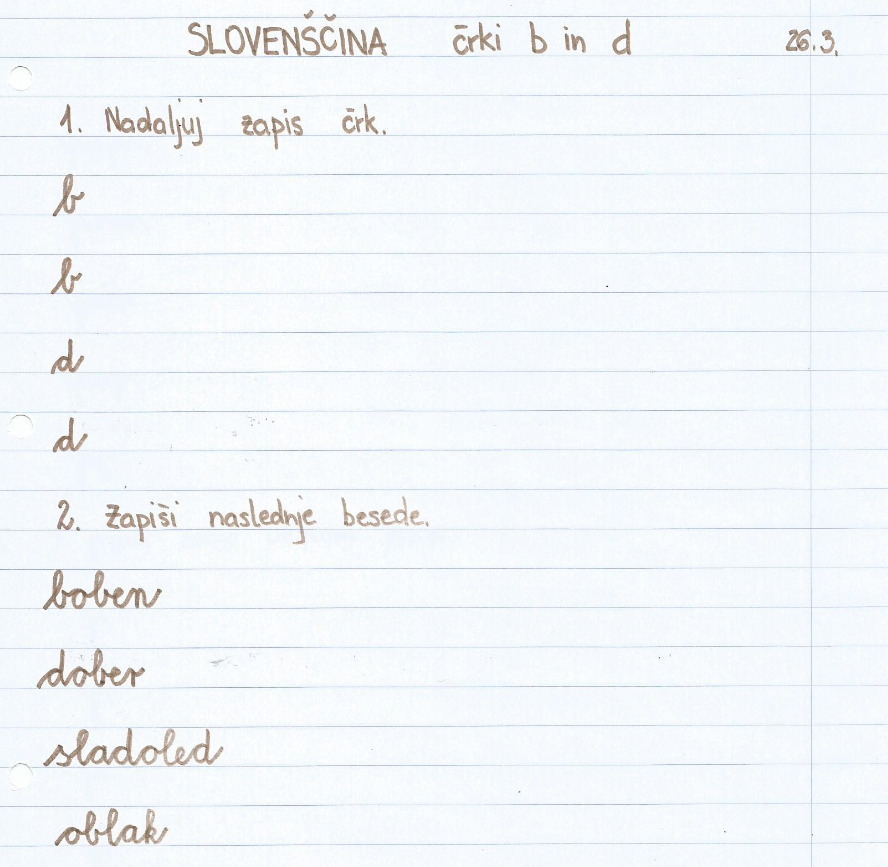 SLOVENŠČINA črki b in d 26.3.
1. Nadaljuj zapis črk.
b
b
d
d
2. Zapiši naslednje besede.
boben
dober
sladoled
oblak